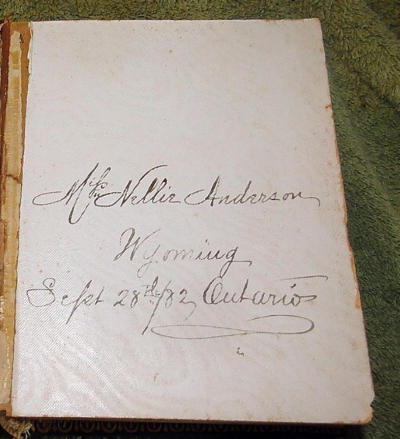 Miss Nellie Anderson
Wyoming
Sept 28th/82 Ontario